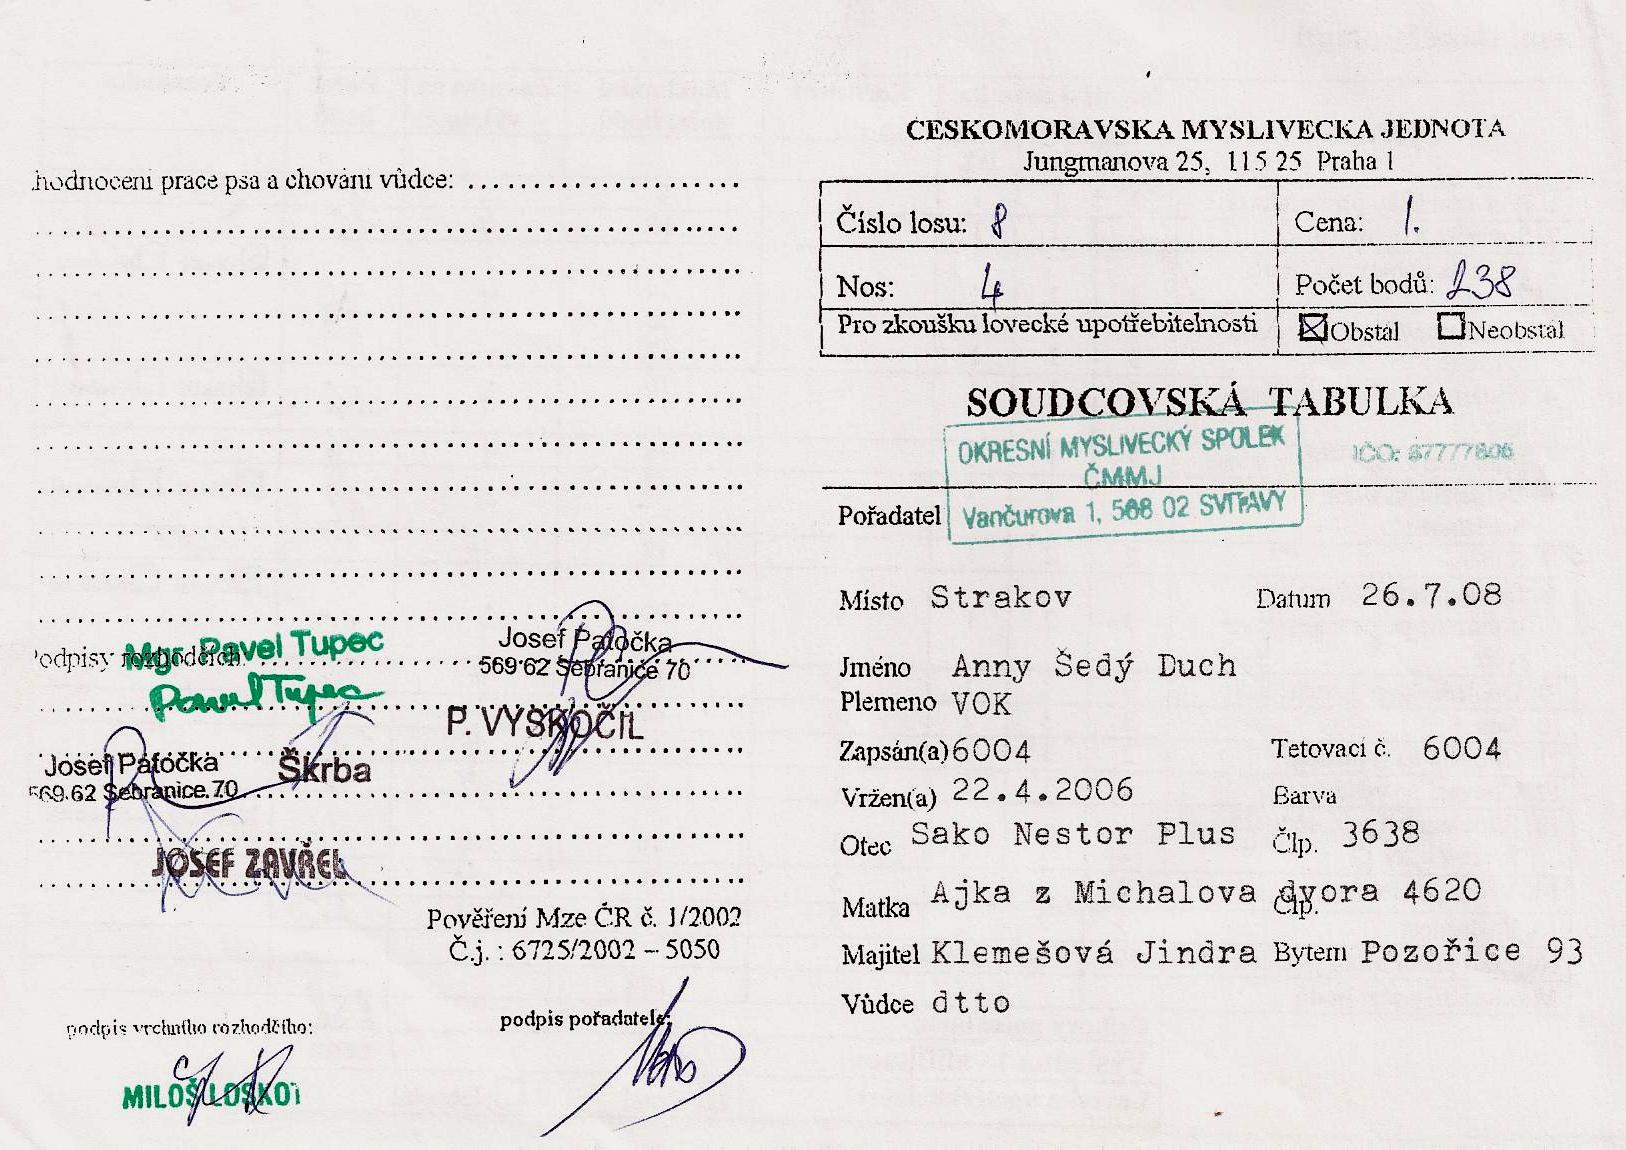 hodnocení prace psa a chování vůdce: ........................
Podpisy rozhodčích
Mgr. Pavel Tupec
Pavel Tupec
Josef Patočka
569 62 Sebranice 70
P. VYSKOČIL
Josef Patočka
569 62 Sebranice 70
Škrba
JOSEF ZAVŘEL
Pověření Mze ČR č. 1/2002
Č.j. : 6725/2002 – 5050
podpis vrchního rozhodčího:
podpis pořadatele:
MILOŠ LOSKOT
ČESKOMORAVSKÁ MYSLIVECKÁ JEDNOTA
Jungmanova 25, 115 25 Praha 1
Číslo losu: 8 Cena: 1.
Nos: 4 Počet bodů: 238
Pro zkoušku lovecké upotřebitelnosti ☒Obstál ☐Neobstál
SOUDCOVSKÁ TABULKA
OKRESNÍ MYSLIVECKÝ SPOLEK
ČMMJ
Vančurova 1, 568 02 SVITAVY
IČO: 67777806
Pořadatel
Místo Strakov Datum 26.7.08
Jméno Anny Šedý Duch
Plemeno VOK
Zapsán(a) 6004 Tetovací č. 6004
Vržen(a) 22.4.2006 Barva
Otec Sako Nestor Plus Člp. 3638
Matka Ajka z Michalova dvora Člp. 4620
Majitel Klemešová Jindra Bytem Pozořice 93
Vůdce dtto